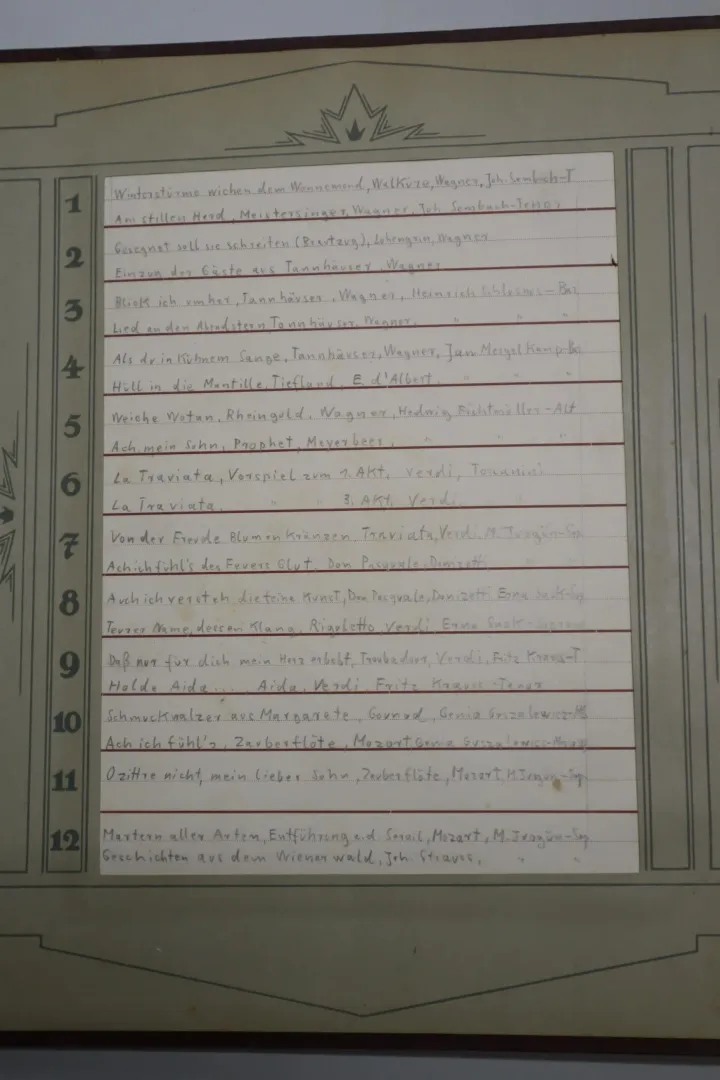 1
Winterstürme wichen dem Wonnemond, Walküre, Wagner, Joh. Sembach-T
Am stillen Herd, Meistersinger, Wagner, Joh Sembach-Tenor
2
Gesegnet soll sie schreiten (Brautzug), Lohengrin, Wagner
Einzug der Gäste aus Tannhäuser, Wagner
3
Blick ich umher, Tannhäuser, Wagner, Heinrich Schlusnus-Bar
Lied an den Abendstern Tannhäuser, Wagner, " " "
4
Als du in kühnem Sange, Tannhäuser, Wagner,
Hüll in die Mantille, Tiefland, E. d'Albert, " " "
5
Weiche Wotan, Rheingold, Wagner, Hedwig -Alt
Ach mein Sohn, Prophet, Meyerbeer, " " "
6
La Traviata, Vorspiel zum 1. Akt, Verdi, Toscanini
La Traviata, " " 3. Akt, Verdi
7
Von der Freude Blumenkränzen, Traviata, Verdi, M. Ivogün-Sop
Ach ich fühl's des Feuers Glut, Don Pasquale, Donizetti
8
Auch ich versteh die feine Kunst, Don Pasquale, Donizetti Erna Sack-Sop
Teurer Name, dessen Klang, Rigoletto, Verdi, Erna Sack-Sopran
9
Daß nur für dich mein Herz erbebt, Troubadour, Verdi, Fritz Krauss-T
Holde Aida...., Aida, Verdi, Fritz Krauss-Tenor
10
Schmuckwalzer aus Margarete, Gounod,
Ach ich fühl's, Zauberflöte, Mozart
11
O zittre nicht, mein lieber Sohn, Zauberflöte, Mozart, M. Ivogün-Sop.
12
Martern aller Arten, Entführung a.d. Serail, Mozart, M. Ivogün-Sop
Geschichten aus dem Wienerwald, Joh. Strauss, " "